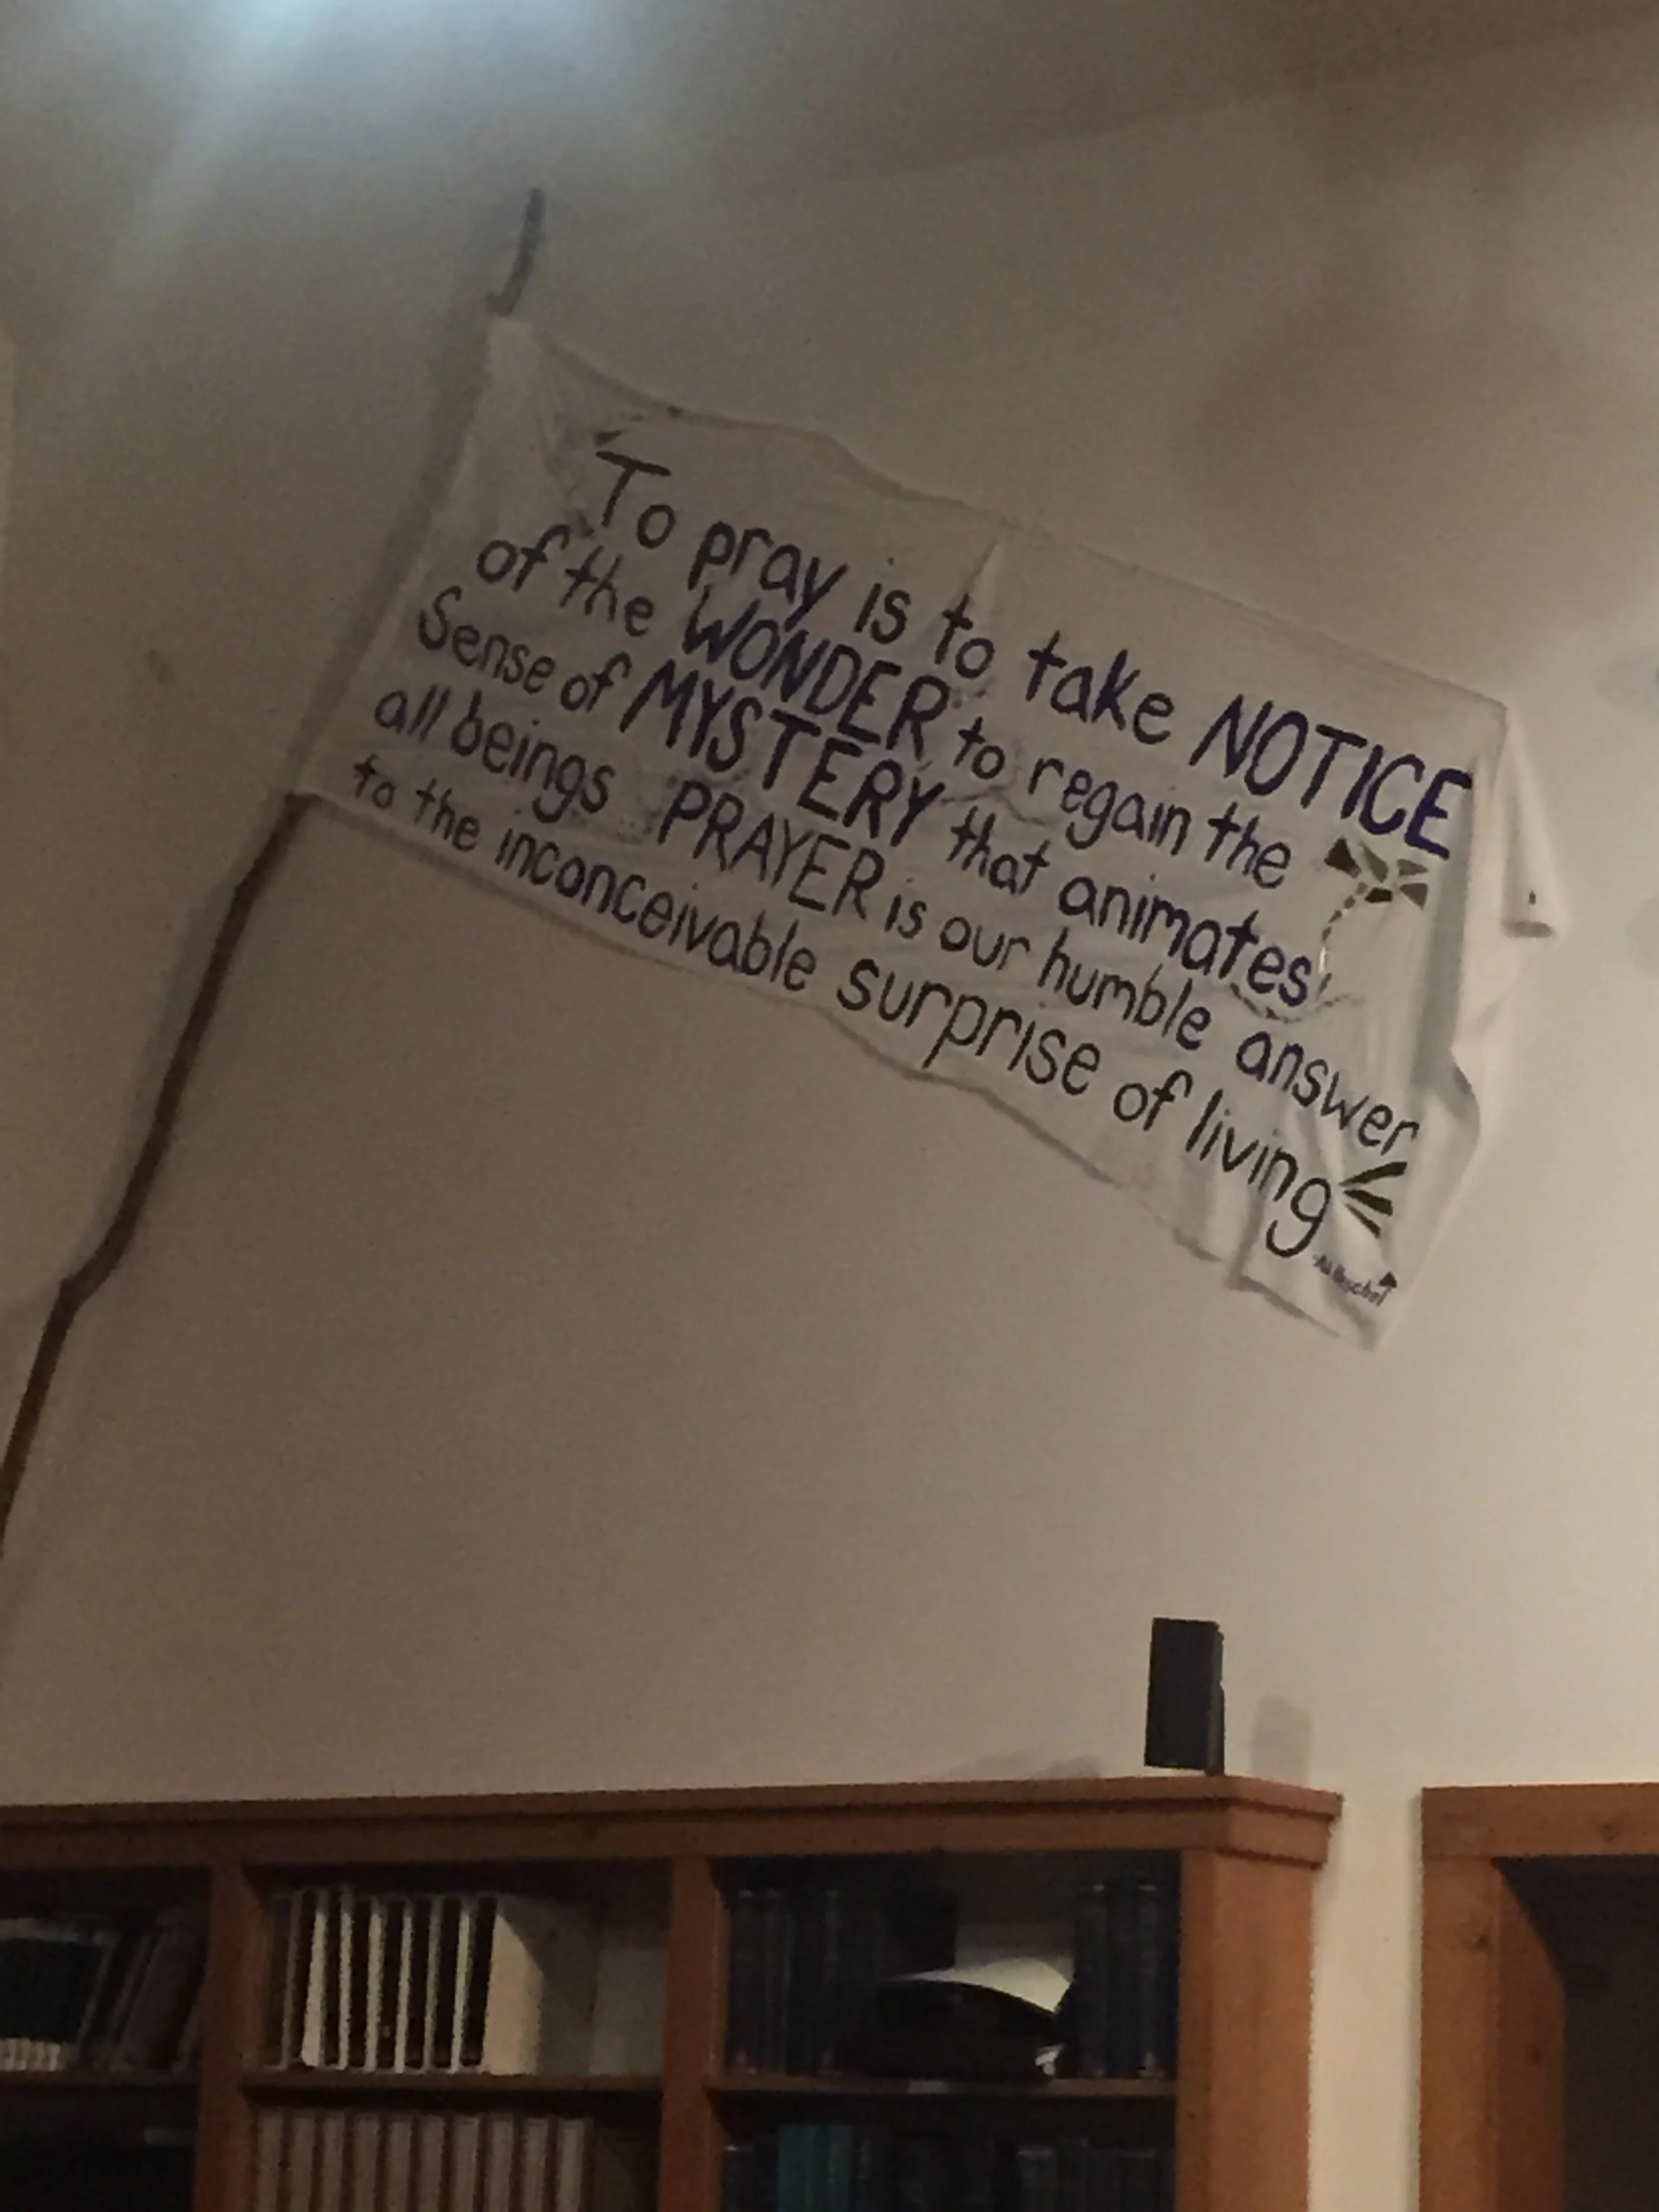 To pray is to take NOTICE
of the WONDER to regain the
Sense of MYSTERY that animates
all beings PRAYER is our humble answer
to the inconceivable surprise of living